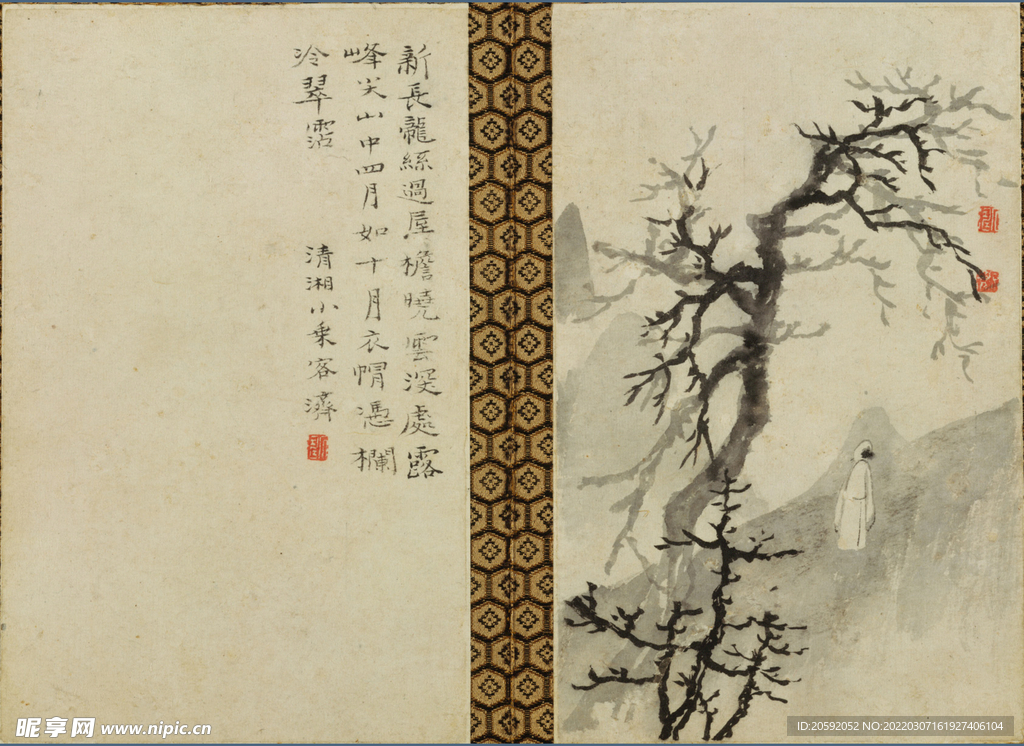 新長龍絲過屋檐曉雲深處露
峰尖山中四月如十月衣帽憑欄
冷翠沾
清湘小乘客濟
昵享网 www.nipic.cn
ID:20592052 NO:20220307161927406104